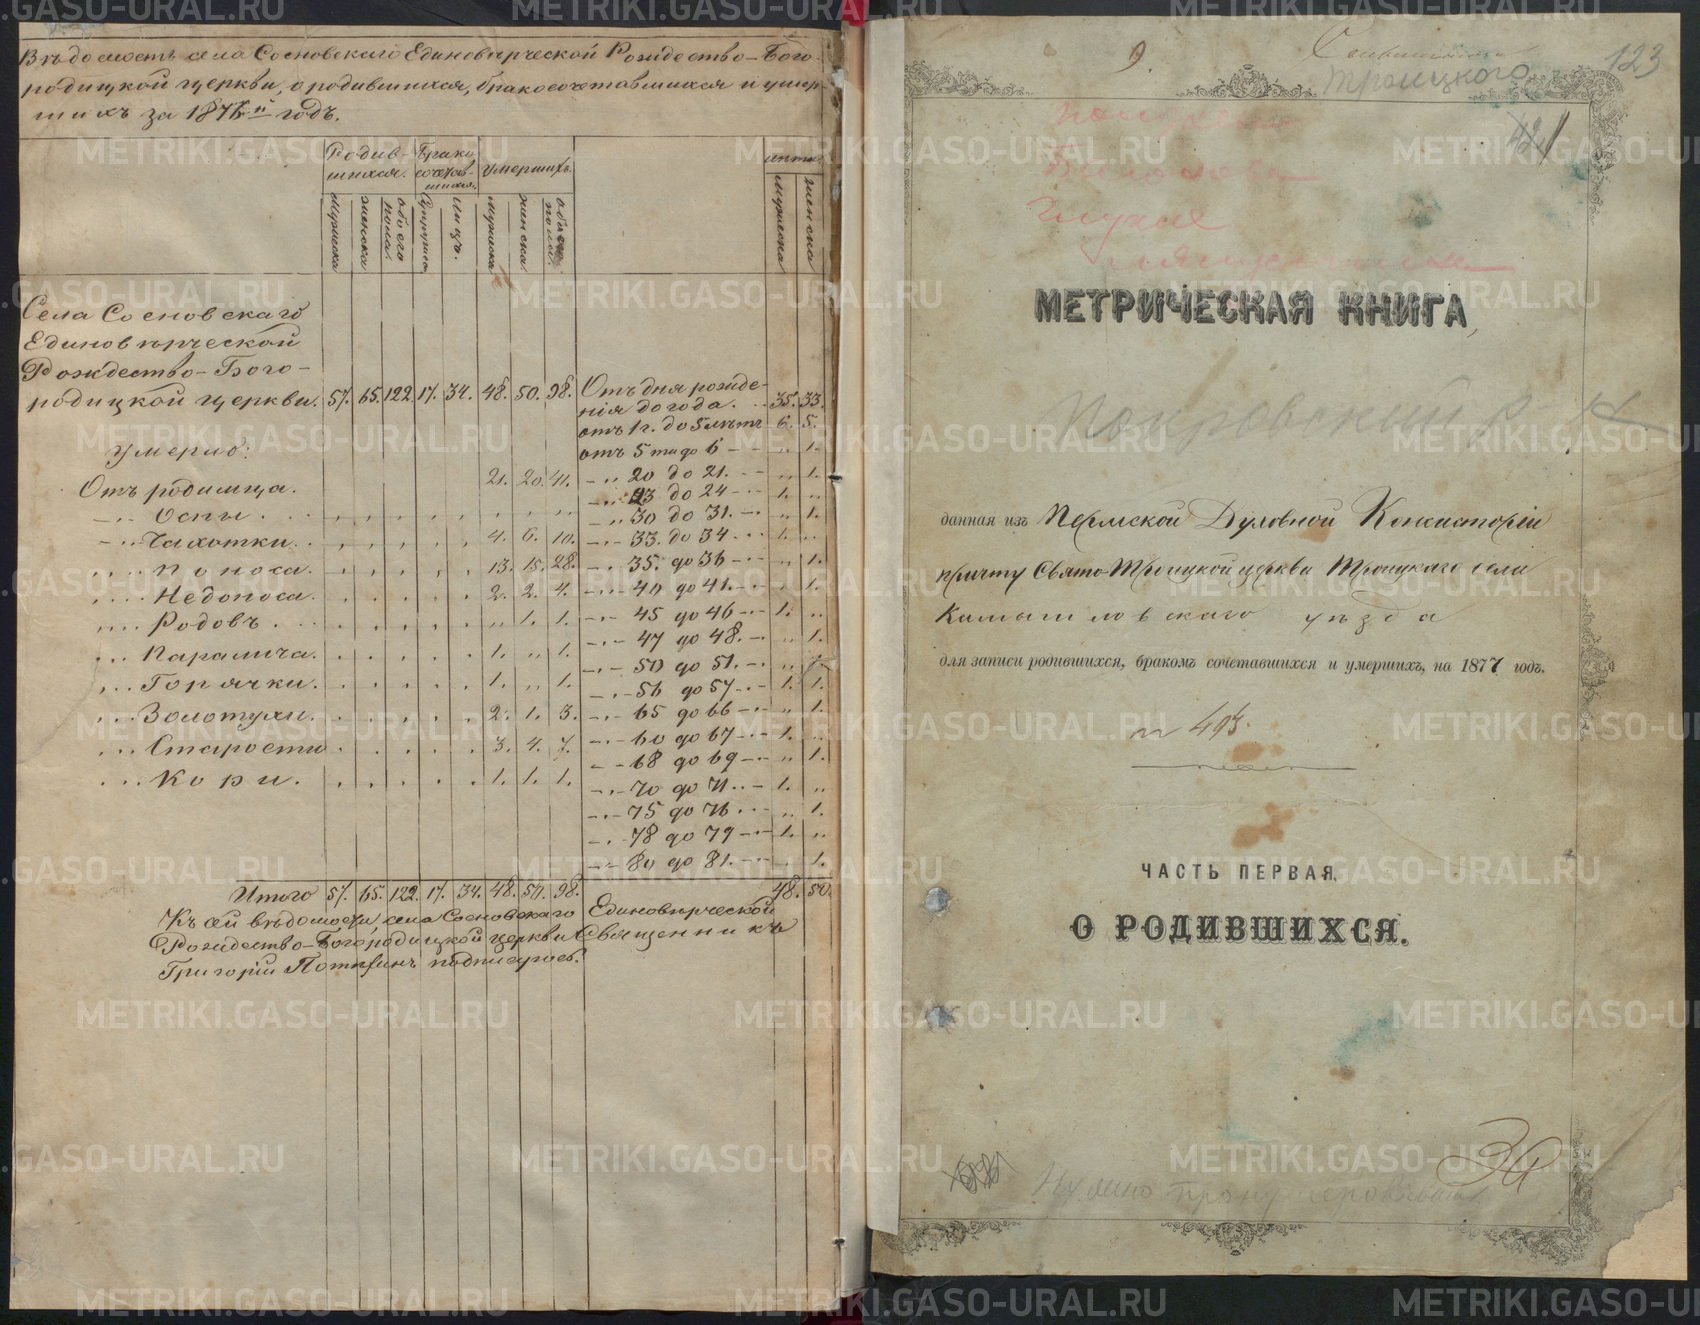 Вѣдомость села Сосновскаго Единовѣрческой Рождество-Бого-
родицкой церкви, о родившихся, бракосочетавшихся и умер-
шихъ за 1876й годъ.
Родив-
шихся.
Брако
сочетав-
шихся.
Умершихъ.
мужеска
женска
обоего
пола.
лицъ.
мужеска
женска.
обоего
пола.
мужеска
женска
Села Сосновскаго
Единовѣрческой
Рождество-Бого-
родицкой церкви. 57. 65. 122. 17. 34. 48. 50. 98.
Умерло:
Отъ родимца. 21. 20. 41.
-„- Оспы.
-„- Чахотки. 4. 6. 10.
„ Поноса. 13. 15. 28.
„ Недоноса. 2. 2. 4.
„ Родовъ. „ 1. 1.
„ Паралича. 1. „ 1.
„ Горячки. 1. „ 1.
„ Золотухи. 2. 1. 3.
„ Старости 3. 4. 7.
„ Кори. 1. 1. 1.
Отъ дня рожде-
нія до года. 35. 33.
отъ 1г. до 5 лѣтъ 6. 5.
отъ 5 ти до 6 „ 1.
-„ 20 до 21. „ 1.
-„ 23 до 24 1. „
-„ 30 до 31. „ 1.
-„- 33. до 34 1. „
-„- 35. до 36 „ 1.
-„- 40 до 41. „ 1.
-„- 45 до 46 1. „
-„- 47 до 48. „ 1.
-„- 50 до 51. „ 1.
-„- 56 до 57 1. 1.
-„- 65 до 66 „ 1.
-„- 60 до 67 1. „
-„- 68 до 69 „ 1.
-„- 70 до 71 1. „
-„- 75 до 76 „ 1.
-„- 78 до 79 1. „
-„- 80 до 81. „ 1.
Итого 57. 65. 122. 17. 34. 48. 50. 98. 48. 50.
Къ сей вѣдомости, села Сосновскаго Единовѣрческой
Рождество-Богородицкой церкви Священникъ
Григорій подписуюсь.
9.
Троицкаго
123
МЕТРИЧЕСКАЯ КНИГА,
Покровский
данная изъ Пермской Духовной Консисторіи
причту Свято-Троицкой церкви Троицкаго села
Камышловскаго уѣзда
для записи родившихся, бракомъ сочетавшихся и умершихъ, на 1877 годъ.
ЧАСТЬ ПЕРВАЯ.
О РОДИВШИХСЯ.
Нужно пронумеровывать
METRIKI.GASO-URAL.RU